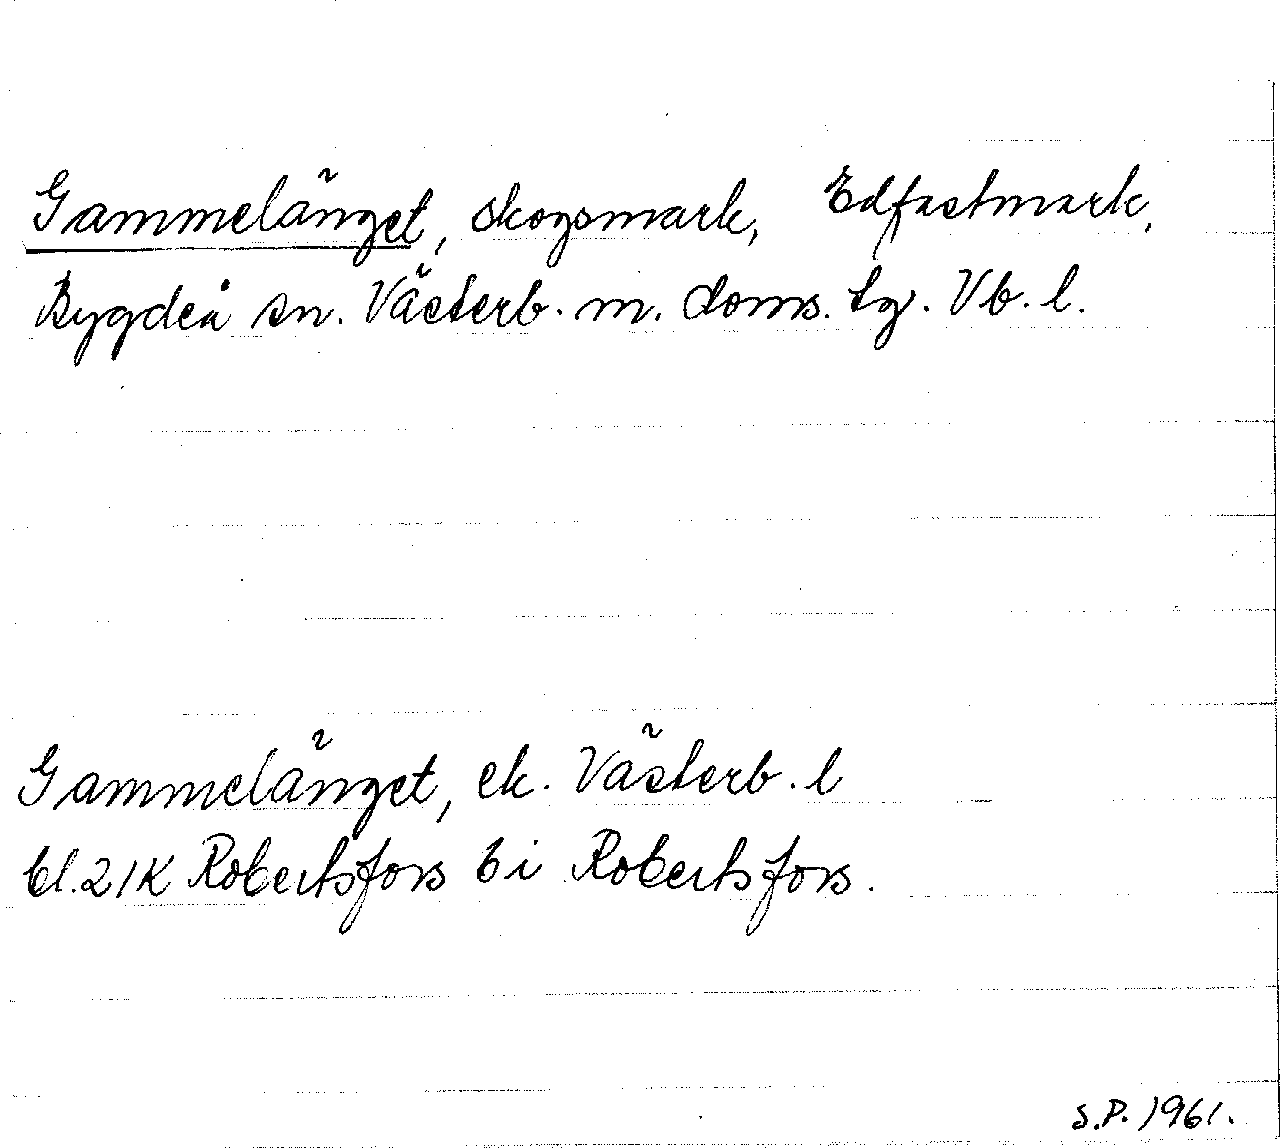 Gammelänget, skogsmark, Edfastmark,
Bygdeå sn. Västerb. m. doms. tg. Vb. l.
Gammelänget, ek. Västerb. l
bl. 21K Robertsfors bi Robertsfors.
S.P. 1961.